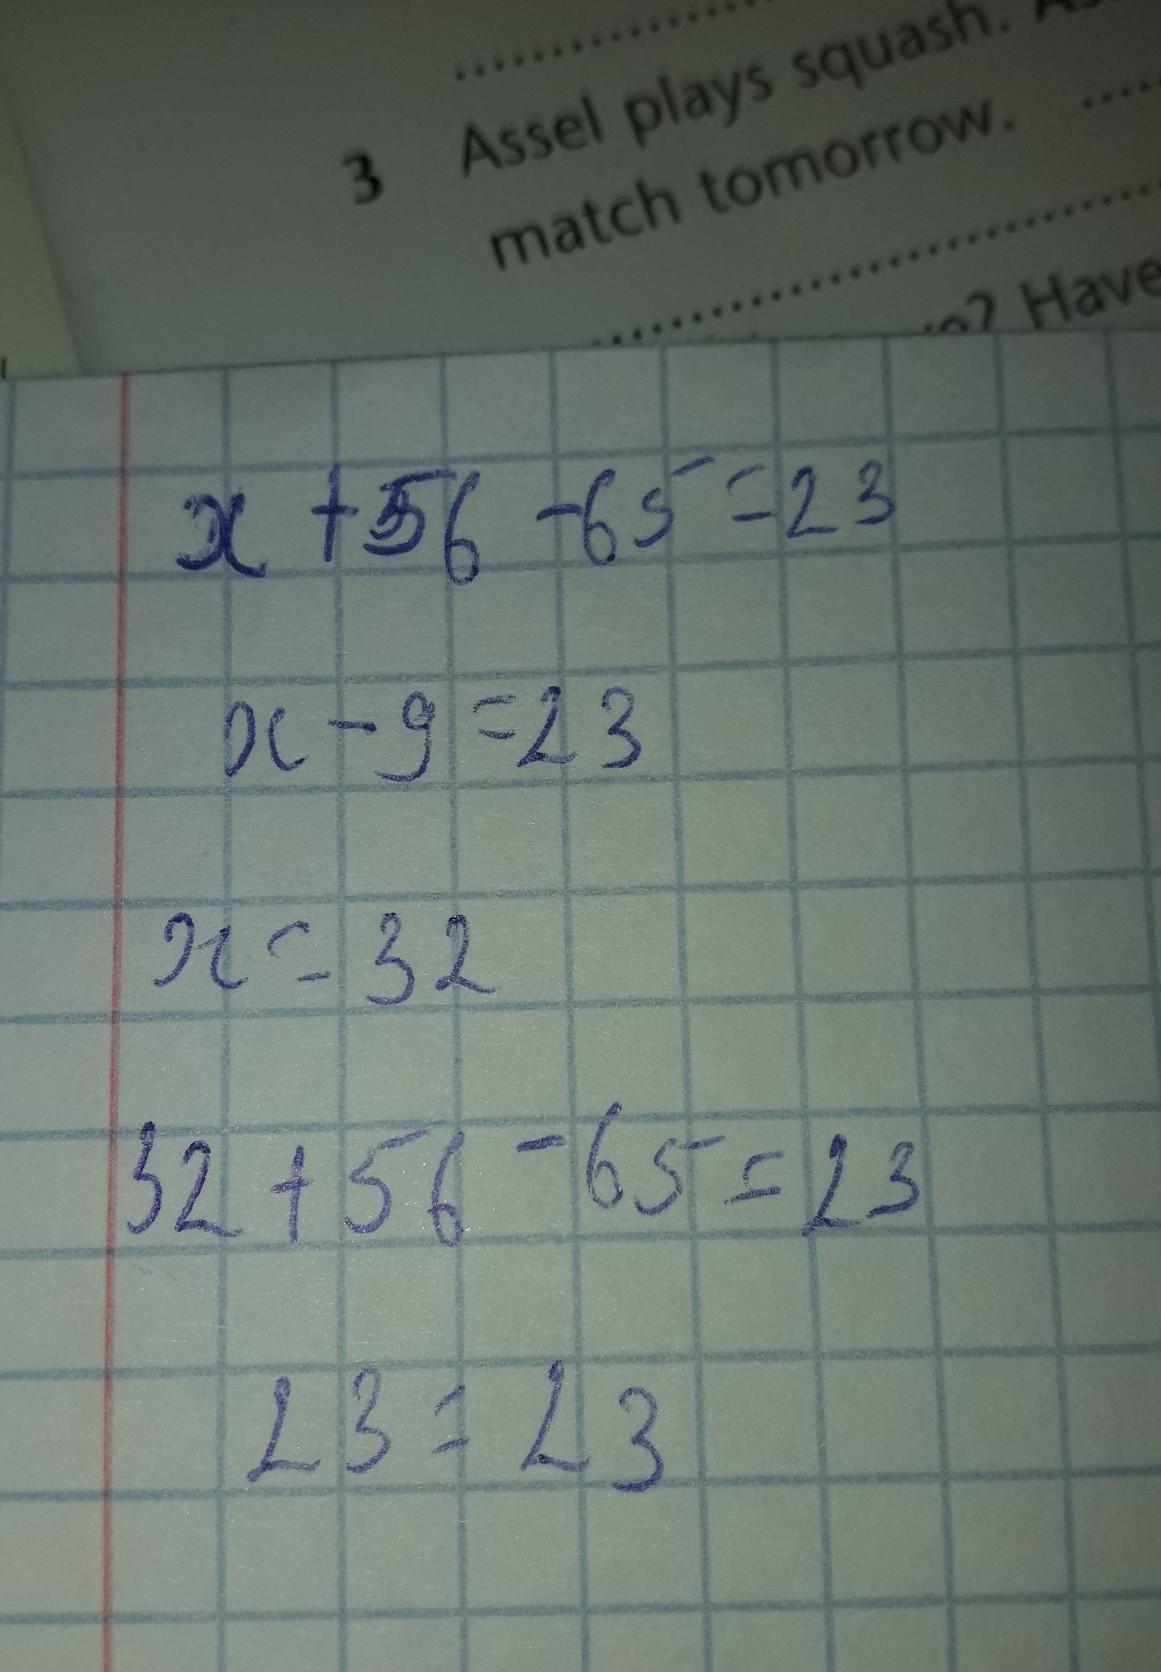 3 Assel plays squash.
match tomorrow.
? Have
x + 56 - 65 = 23
x - 9 = 23
x = 32
32 + 56 - 65 = 23
23 = 23